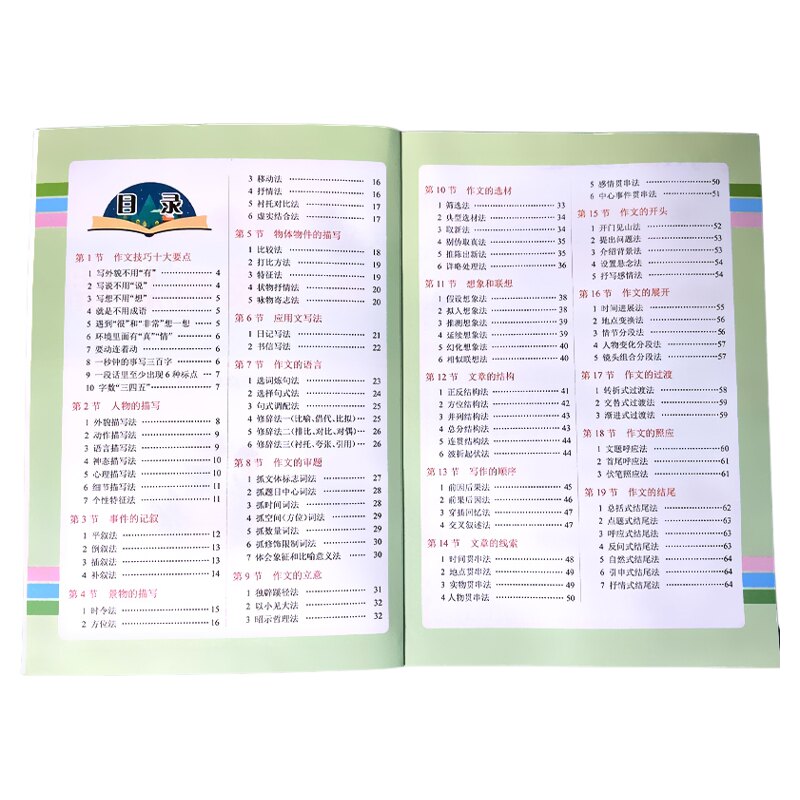 目录
第1节 作文技巧十大要点
1 写外貌不用“有” 4
2 写说不用“说” 4
3 写想不用“想” 5
4 就是不用成语 5
5 遇到“很”和“非常”想一想 5
6 环境里面有“真”“情” 6
7 要动连着动 6
8 一秒钟的事写三百字 6
9 一段话里至少出现6种标点 7
10 字数“三四五” 7
第2节 人物的描写
1 外貌描写法 8
2 动作描写法 9
3 语言描写法 9
4 神态描写法 10
5 心理描写法 10
6 细节描写法 11
7 个性特征法 11
第3节 事件的记叙
1 平叙法 12
2 倒叙法 13
3 插叙法 13
4 补叙法 14
第4节 景物的描写
1 时令法 15
2 方位法 16
3 移动法 16
4 抒情法 16
5 衬托对比法 17
6 虚实结合法 17
第5节 物体物件的描写
1 比较法 18
2 打比方法 19
3 特征法 19
4 状物抒情法 20
5 咏物寄志法 20
第6节 应用文写法
1 日记写法 21
2 书信写法 22
第7节 作文的语言
1 选词炼句法 23
2 选择句式法 24
3 句式调配法 25
4 修辞法一(比喻、借代、比拟) 25
5 修辞法二(排比、对比、对偶) 26
6 修辞法三(衬托、夸张、引用) 26
第8节 作文的审题
1 抓文体标志词法 27
2 抓题目中心词法 28
3 抓时间词法 28
4 抓空间(方位)词法 29
5 抓数量词法 29
6 抓修饰限制词法 30
7 体会象征和比喻意义法 30
第9节 作文的立意
1 独辟蹊径法 31
2 以小见大法 32
3 昭示哲理法 32
第10节 作文的选材
1 筛选法 33
2 典型选材法 34
3 取新法 34
4 剔伪取真法 35
5 推陈出新法 35
6 详略处理法 36
第11节 想象和联想
1 假设想象法 38
2 拟人想象法 38
3 推测想象法 39
4 延续想象法 39
5 幻化想象法 40
6 相似联想法 40
第12节 文章的结构
1 正反结构法 41
2 方位结构法 42
3 并列结构法 43
4 总分结构法 43
5 连贯结构法 44
6 波折起伏法 44
第13节 写作的顺序
1 前因后果法 45
2 前果后因法 46
3 穿插回忆法 47
4 交叉叙述法 47
第14节 文章的线索
1 时间贯串法 48
2 地点贯串法 49
3 实物贯串法 49
4 人物贯串法 50
5 感情贯串法 50
6 中心事件贯串法 51
第15节 作文的开头
1 开门见山法 52
2 提出问题法 53
3 介绍背景法 53
4 设置悬念法 54
5 抒写感情法 54
第16节 作文的展开
1 时间进展法 55
2 地点变换法 56
3 情节分段法 56
4 人物变化分段法 57
5 镜头组合分段法 57
第17节 作文的过渡
1 转折式过渡法 58
2 交替式过渡法 59
3 渐进式过渡法 59
第18节 作文的照应
1 文题呼应法 60
2 首尾呼应法 61
3 伏笔照应法 61
第19节 作文的结尾
1 总括式结尾法 62
2 点题式结尾法 63
3 呼应式结尾法 63
4 反问式结尾法 63
5 自然式结尾法 64
6 引申式结尾法 64
7 抒情式结尾法 64